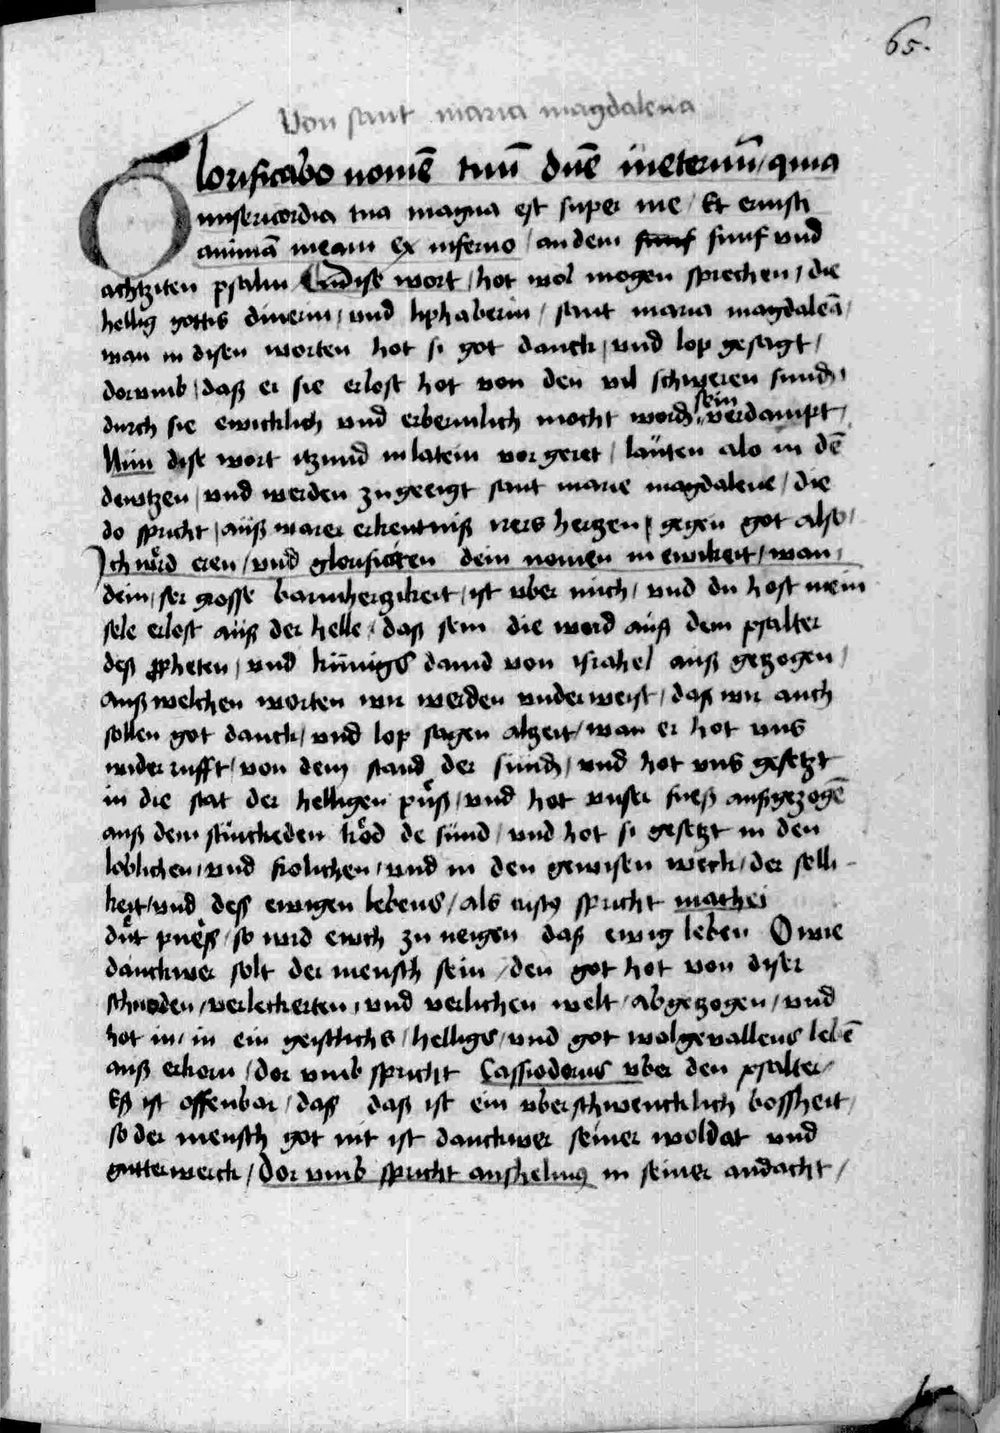 65.
Von sant maria magdalena
Glorificabo nomē tuū dn̄e ineternū / quia
misericordia tua magna est super me / Et eruisti
animā meam ex inferno / an dem funf funf vnd
achtziten psalm Dise wort / hot wol mogen sprechen / die
hellig gottis dinerin / vnd liphaberin / sant maria magdaleā /
wan in disen worten hot si got danck / vnd lop gesagt /
dorumb / daß er sie erlost hot von den vil schweren sund /
durch sie ewicklich vnd erbermlich mocht word sein verdampt /
Nun dise wort itzund in latein vor geret / lauten alo in dē
dewtzen / vnd werden zu geeigt sant marie magdalene / die
do spricht / auß warer erkentniß irers hertzen / gegen got also /
Ich wird eren / vnd glorificiren dein nomen in ewikeit / wan /
dein / ser grosse barmhertzikeit / ist vber mich / vnd du host mein
sele erlost auß der helle / daß sein die word auß dem psalter
deß propheten / vnd künigs dauid von israhel auß gezogen /
auß welchen worten wir werden vnderweist / daß wir auch
sollen got danck / vnd lop sagen alzeit / wan er hot vns
wider rufft / von dem stand der sünd / vnd hot vns gesetzt
in die stat der helligen puͤß / vnd hot vnser fueß außgezogē
auß dem stinckeden kod de sünd / vnd hot si gesetzt in den
loblichen / vnd frolichen / vnd in den gewisen weck / der selli-
keit / vnd deß ewigen lebens / als cristꝰ spricht mathei
dut pueß / so wird ewch zu neigen daß ewig leben O wie
danckwer solt der mensch sein / den got hot von diser
schnoden / verleckerten / vnd verlichen welt / abgezogen / vnd
hot in / in ein geistlichs / helligs / vnd got wolgevallens lebē
auß erkorn / dor vmb spricht Cassiodorus vber den psalter /
Eß ist offenbar / daß daß ist ein vberschwencklich bossheit /
so der mensch got nit ist danckwer seiner woldat vnd
gutter werck / Dor vmb spricht anshelmꝰ in seiner andacht /